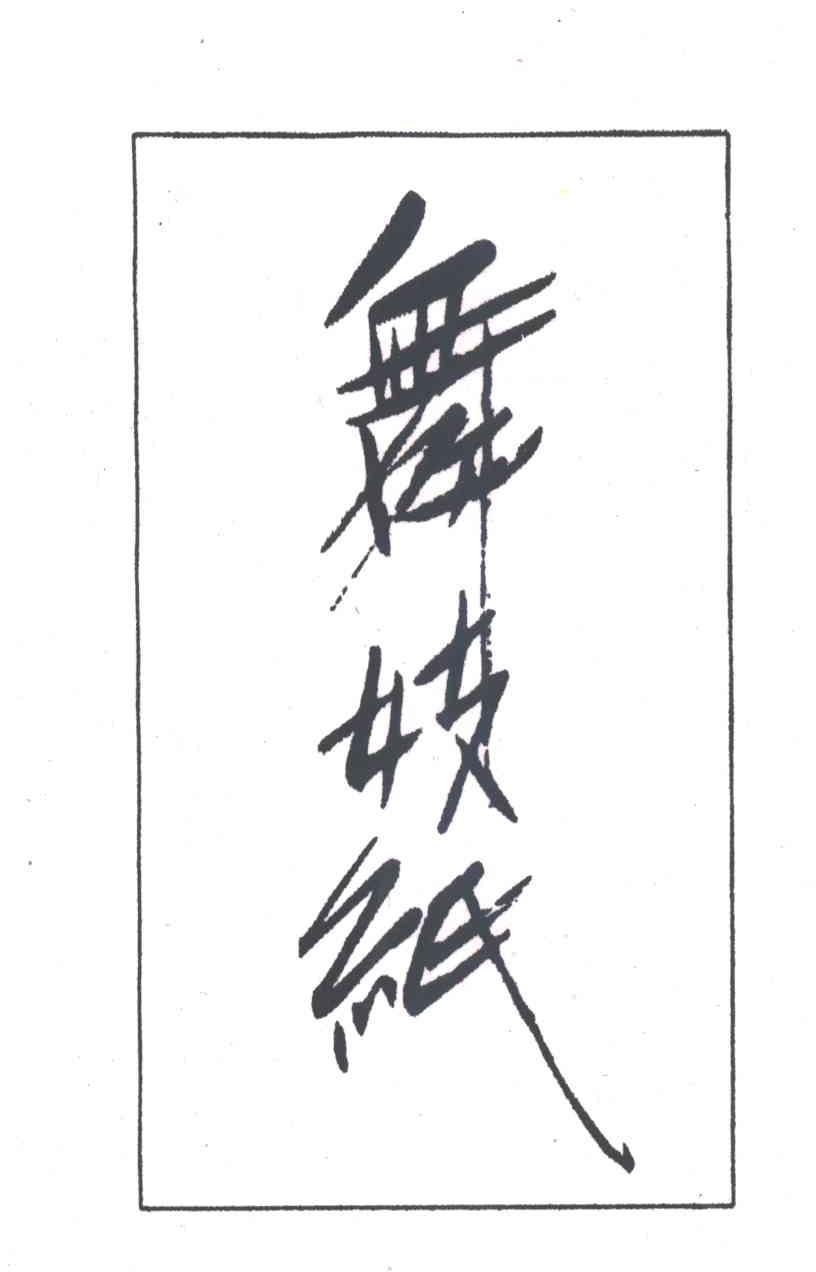 舞妓紙